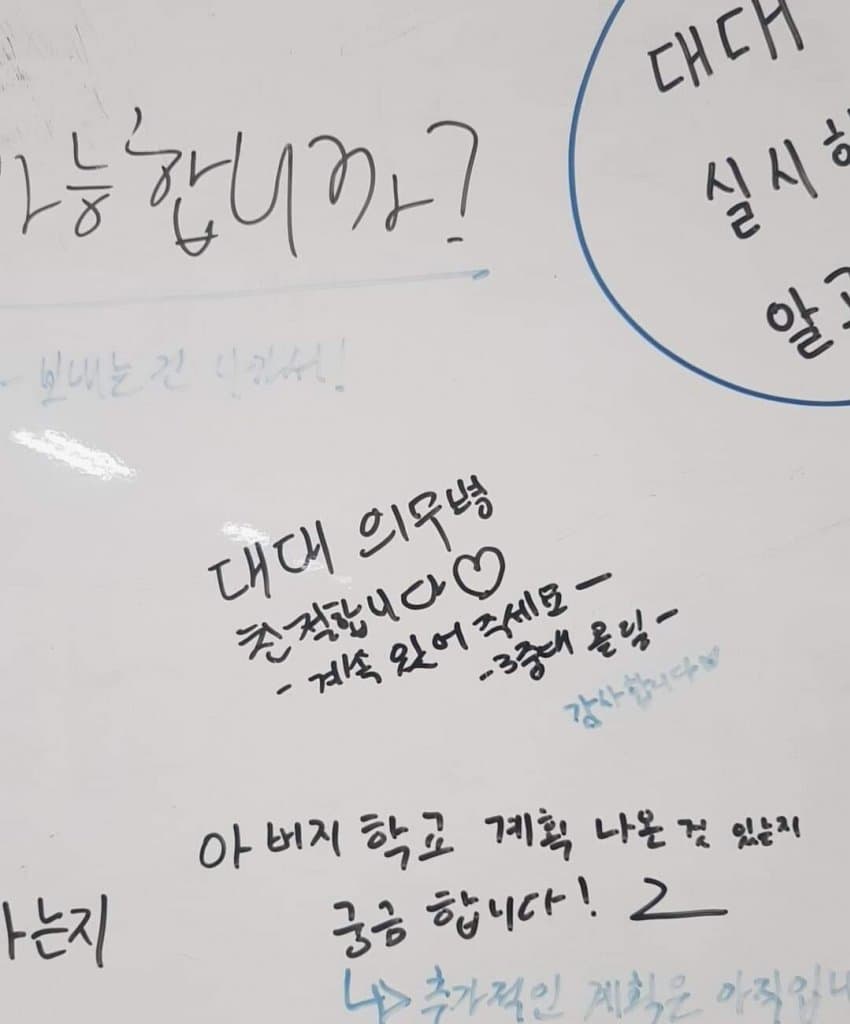 대대
실시
가능합니까?
알고
보내는 건
대대 의무병
친절합니다♡
- 계속 있어 주세요 -
- 3중대 올림 -
감사합니다♡
아버지 학교 계획 나온 것 있는지
궁금합니다!
는지
↳ 추가적인 계획은 아직입니